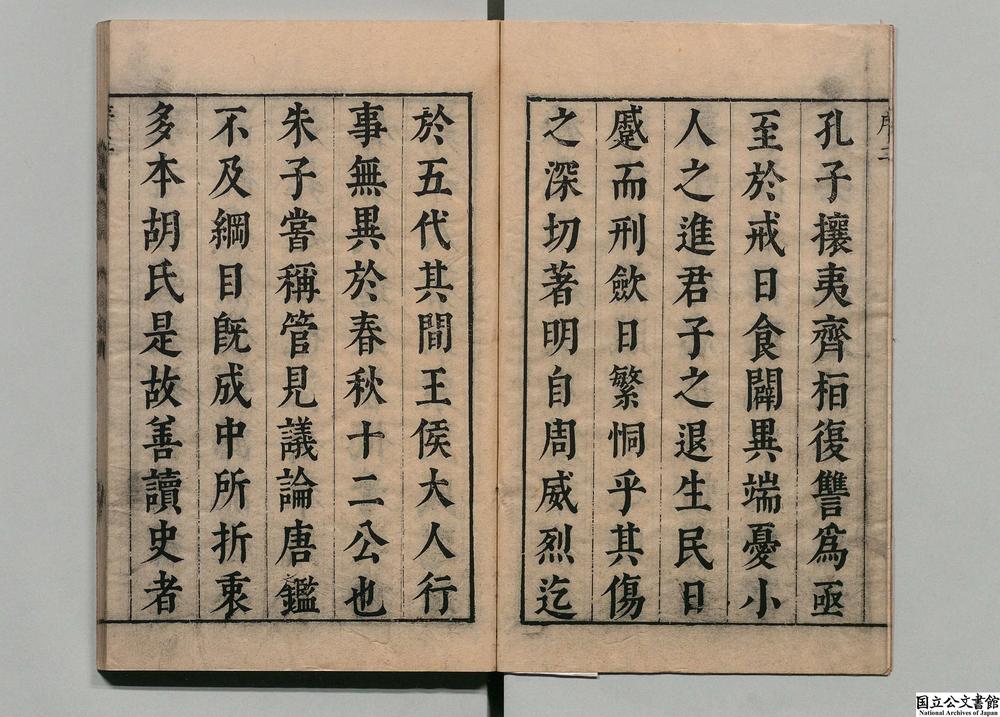 孔子攘夷齊栢復讐爲亟
至於戒日食闢異端憂小
人之進君子之退生民日
蹙而刑歛日繁恫乎其傷
之深切著明自周威烈迄
於五代其間王侯大人行
事無異於春秋十二公也
朱子嘗稱管見議論唐鑑
不及綱目旣成中所折衷
多本胡氏是故善讀史者
国立公文書館
National Archives of Japan